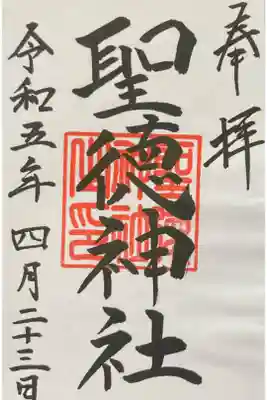 奉拝
聖徳神社
令和五年 四月二十三日